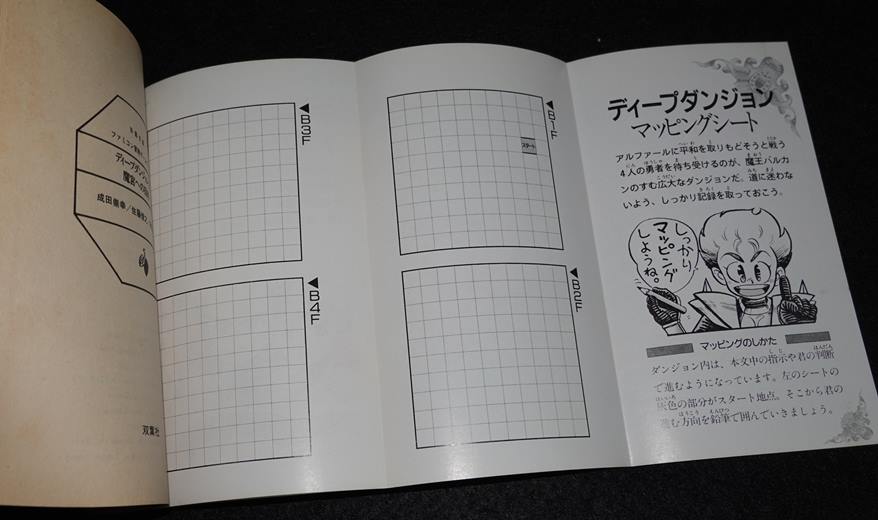 ディープダンジョン
マッピングシート
アルファールに平和を取りもどそうと戦う
4人の勇者を待ち受けるのが、魔王バルカ
ンのすむ広大なダンジョンだ。道に迷わな
いよう、しっかり記録を取っておこう。
しっかり
マッピング
しようね。
マッピングのしかた
ダンジョン内は、本文中の指示や君の判断
で進むようになっています。左のシートの
灰色の部分がスタート地点。そこから君の
進む方向を鉛筆で囲んでいきましょう。
◀B1F
スタート
◀B2F
◀B3F
◀B4F
ファミコン冒険
ディープダンジョン
魔宮への
成田
双葉社